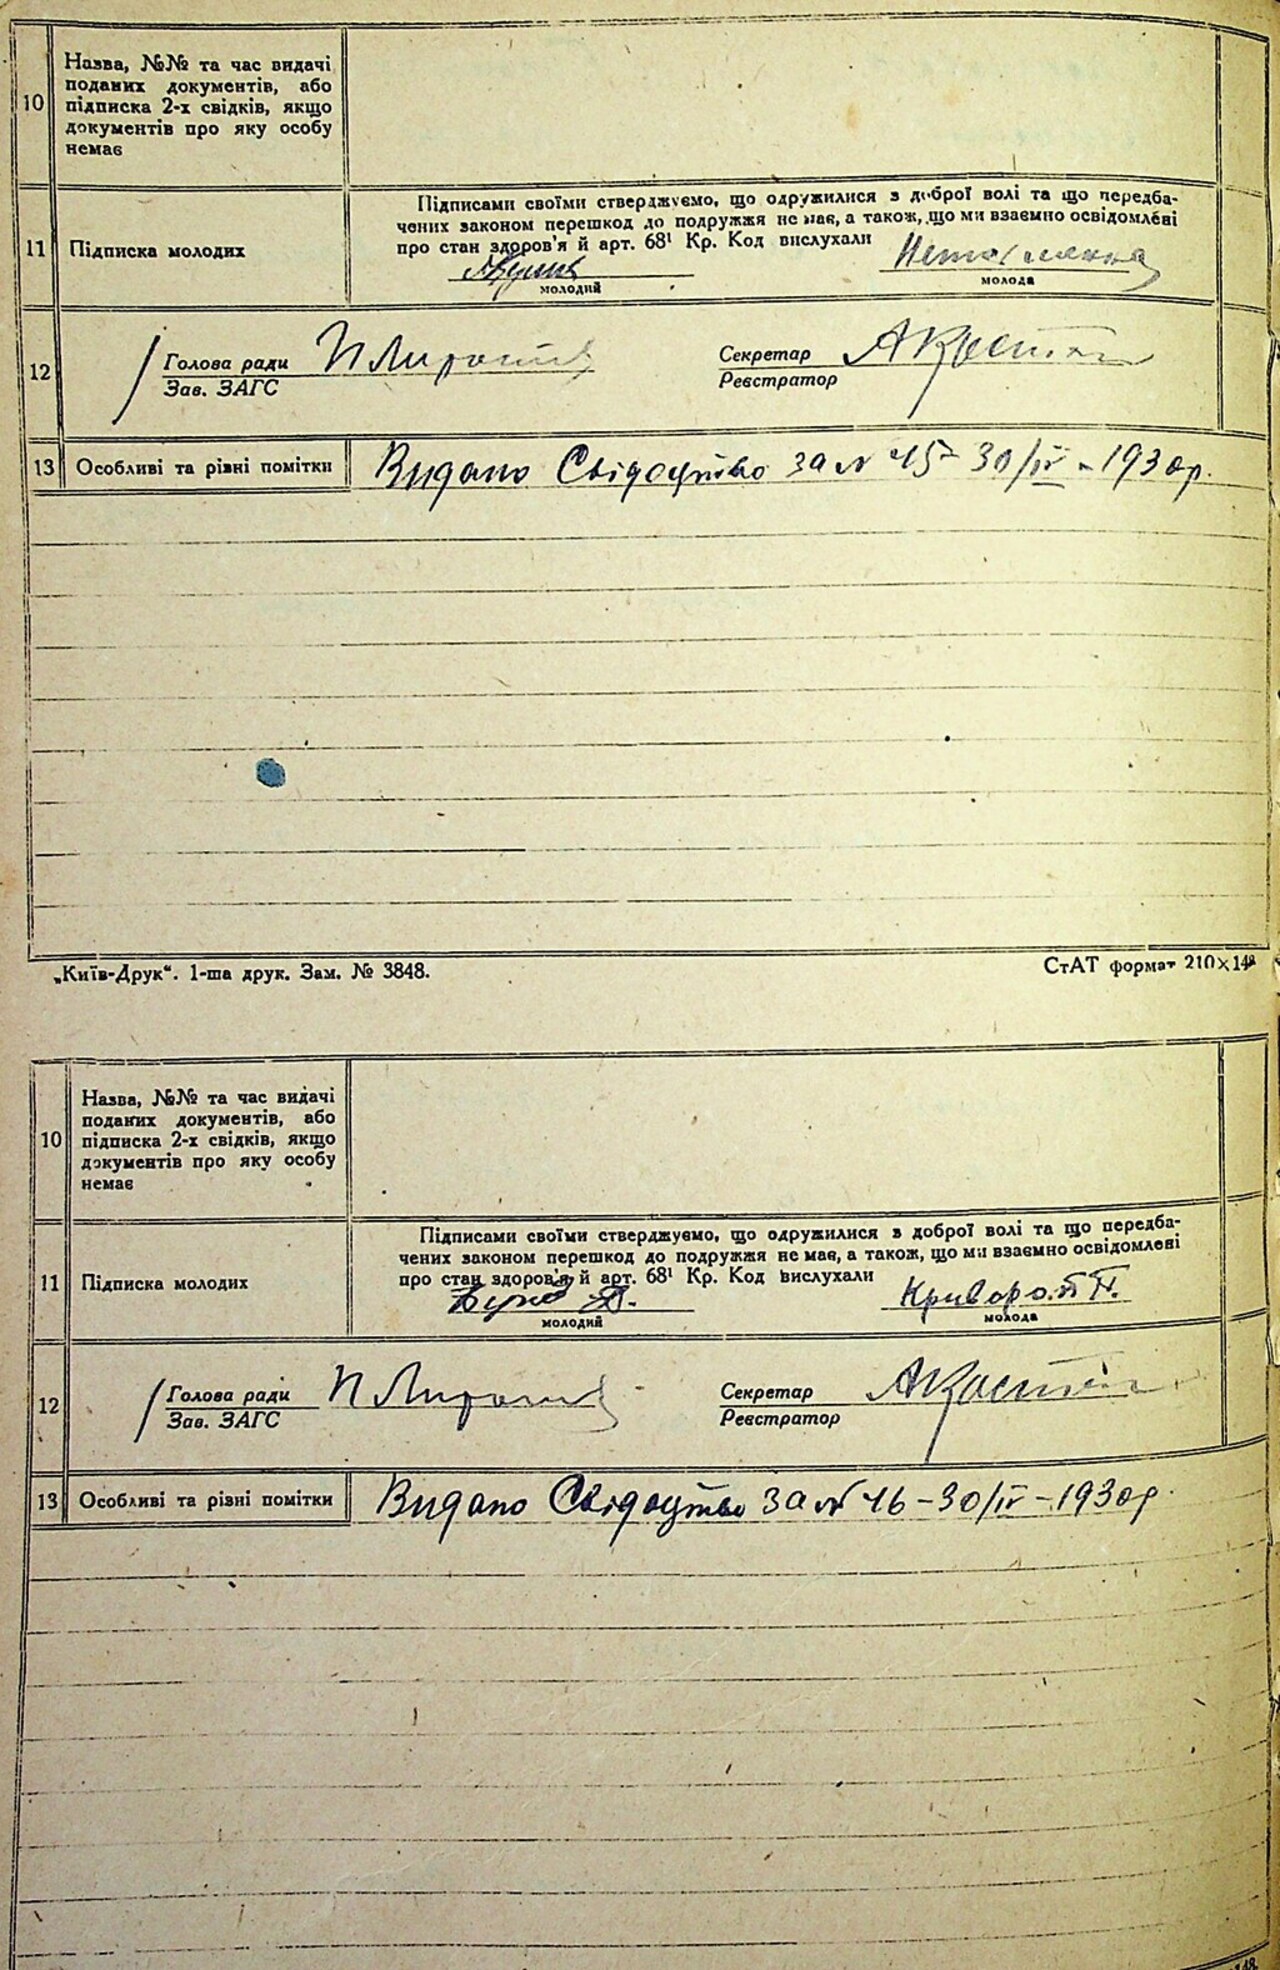 10
Назва, №№ та час видачі
поданих документів, або
підписка 2-х свідків, якщо
документів про яку особу
немає
11
Підписка молодих
Підписами своїми стверджуємо, що одружилися з доброї волі та що передба-
чених законом перешкод до подружжя не має, а також, що ми взаємно освідомлені
про стан здоров'я й арт. 68¹ Кр. Код вислухали
молодий
молода
12
Голова ради
Зав. ЗАГС
Секретар
Реєстратор
13
Особливі та різні помітки
Видано Свідоцтво за № 45 - 30/IV - 1930р.
„Київ-Друк“. 1-ша друк. Зам. № 3848.
СтАТ формат 210×148
10
Назва, №№ та час видачі
поданих документів, або
підписка 2-х свідків, якщо
документів про яку особу
немає
11
Підписка молодих
Підписами своїми стверджуємо, що одружилися з доброї волі та що передба-
чених законом перешкод до подружжя не має, а також, що ми взаємно освідомлені
про стан здоров'я й арт. 68¹ Кр. Код вислухали
молодий
молода
12
Голова ради
Зав. ЗАГС
Секретар
Реєстратор
13
Особливі та різні помітки
Видано Свідоцтво за № 46 - 30/IV - 1930р.